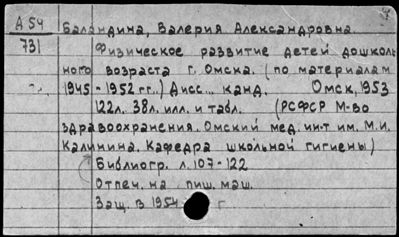 А 54
731
Баландина, Валерия Александровна.
Физическое развитие детей дошколь-
ного возраста г. Омска. (по материалам
1945-1952 гг.) Дисс... канд. Омск, 1953
122л. 38л. илл. и табл. (РСФСР М-во
здравоохранения. Омский мед. ин-т им. М.И.
Калинина. Кафедра школьной гигиены)
Библиогр. л. 107-122
Отпеч. на пиш. маш.
Защ. в 1954 г